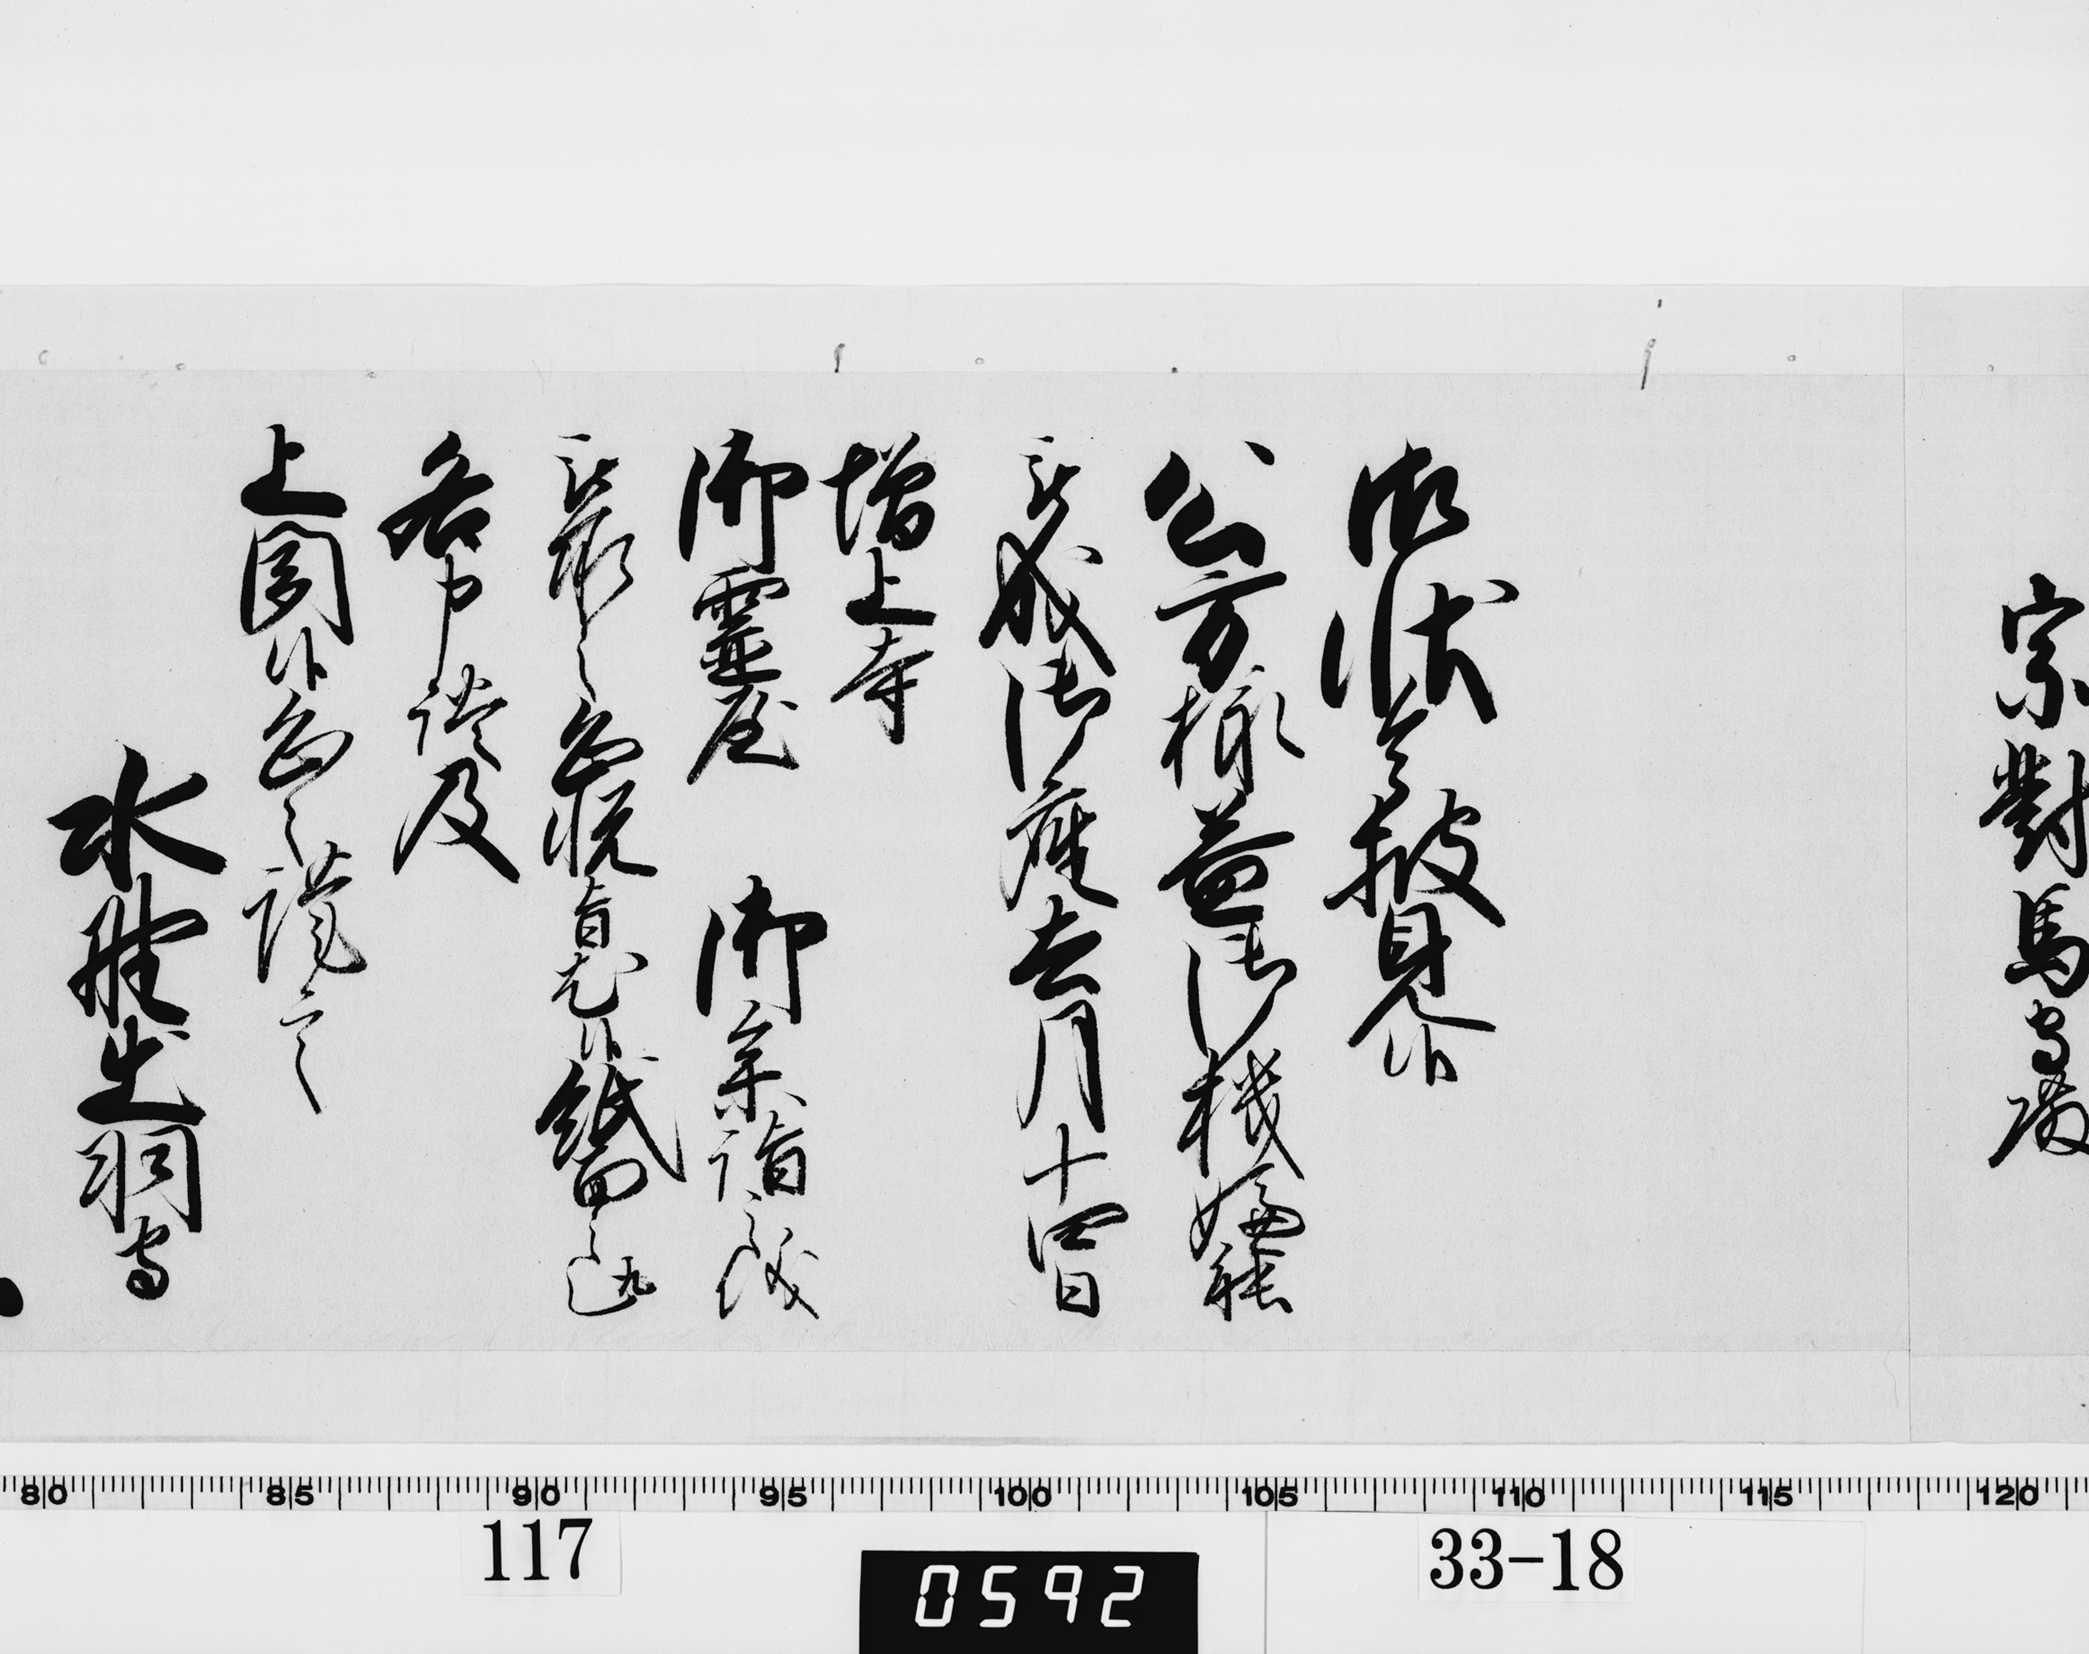 宗對馬守殿
御状令披見候
公方様益御機嫌能
被成御座去月十四日
増上寺
御霊屋 御参詣之儀
被承之恐悦旨尤候紙面之趣
各申談及
上聞候恐々謹言
水野出羽守
80 85 90 95 100 105 110 115 120
117
0592
33-18